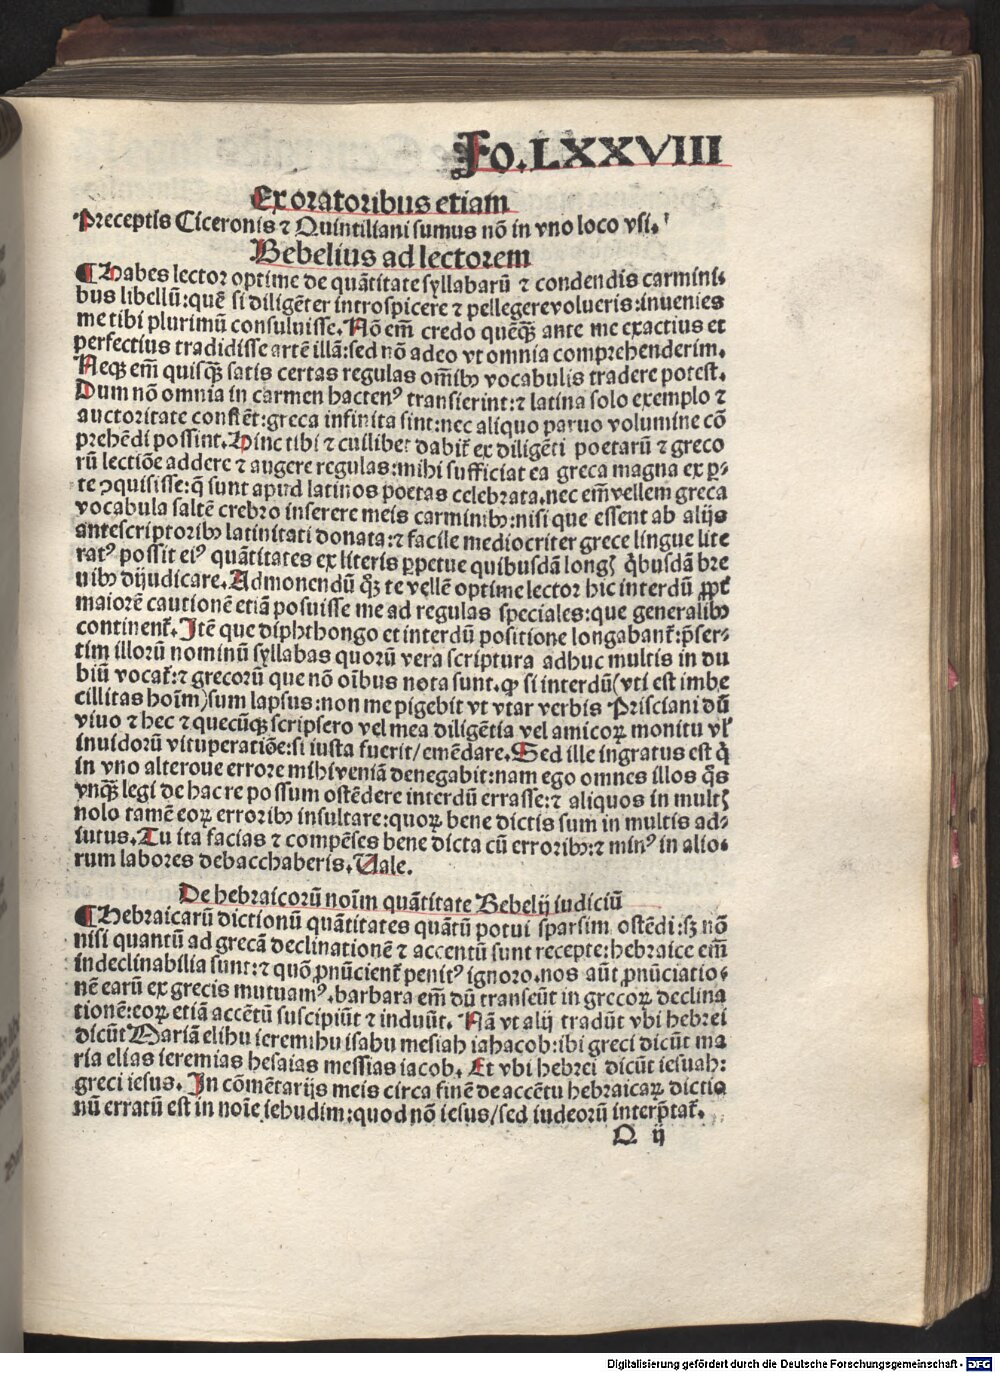 Fo. LXXVIII
Ex oratoribus etiam
Preceptis Ciceronis ⁊ Quintiliani sumus nō in vno loco vsi.
Bebelius ad lectorem
¶ Habes lector optime de quātitate syllabarū ⁊ condendis carmini⸗
bus libellū: quē si diligēter introspicere ⁊ pellegere volueris: inuenies
me tibi plurimū consuluisse. Nō em̄ credo quēqȝ ante me exactius et
perfectius tradidisse artē illā: sed nō adeo vt omnia comprehenderim.
Neqȝ em̄ quisqȝ satis certas regulas om̄ibꝰ vocabulis tradere potest.
Dum nō omnia in carmen hactenꝰ transierint: ⁊ latina solo exemplo ⁊
auctoritate constēt: greca infinita sint: nec aliquo paruo volumine cō
prehēdi possint. Hinc tibi ⁊ cuilibet dabit̄ ex diligēti poetarū ⁊ greco
rū lectiōe addere ⁊ augere regulas: mihi sufficiat ea greca magna ex ꝑ⸗
te ꝯquisisse: q̄ sunt apud latinos poetas celebrata. nec em̄ vellem greca
vocabula saltē crebro inserere meis carminibꝰ: nisi que essent ab alijs
antescriptoribꝰ latinitati donata: ⁊ facile mediocriter grece lingue lite
ratꝰ possit eiꝰ quātitates ex literis ꝑpetue quibusdā longꝭ q̇busdā bre
uibꝰ dijudicare. Admonendū qȝ te vellē optime lector hic interdū ꝓpt̄
maiorē cautionē etiā posuisse me ad regulas speciales: que generalibꝰ
continent̄. Itē que diphthongo et interdū positione longabant̄: p̄ser⸗
tim illorū nominū syllabas quorū vera scriptura adhuc multis in du
biū vocat̄: ⁊ grecorū que nō oībus nota sunt. ꝙ si interdū (vti est imbe
cillitas hoīm) sum lapsus: non me pigebit vt vtar verbis Prisciani dū
viuo ⁊ hec ⁊ quecūqȝ scripsero vel mea diligētia vel amicoꝝ monitu vl̄
inuidorū vituperatiōe: si iusta fuerit/ emēdare. Sed ille ingratus est q̇
in vno alteroue errore mihi veniā denegabit: nam ego omnes illos q̄s
vnqȝ legi de hac re possum ostēdere interdū errasse: ⁊ aliquos in multꝭ
nolo tamē eoꝝ erroribꝰ insultare: quoꝝ bene dictis sum in multis ad⸗
iutus. Tu ita facias ⁊ compēses bene dicta cū erroribꝰ: ⁊ minꝰ in alio⸗
rum labores debacchaberis. Vale.
De hebraicorū noīm quātitate Bebelij iudiciū
¶ Hebraicarū dictionū quātitates quātū potui sparsim ostēdi: sȝ nō
nisi quantū ad grecā declinationē ⁊ accentū sunt recepte: hebraice em̄
indeclinabilia sunt: ⁊ quō ꝓnūcient̄ penitꝰ ignoro. nos aūt ꝓnūciatio⸗
nē earū ex grecis mutuamꝰ. barbara em̄ dū transeūt in grecoꝝ declina
tionē: eoꝝ etiā accētū suscipiūt ⁊ induūt. Nā vt alij tradūt vbi hebrei
dicūt Mariā elihu ieremihu isahu mesiah iahacob: ibi greci dicūt ma
ria elias ieremias hesaias messias iacob. Et vbi hebrei dicūt iesuah:
greci iesus. In cōmētarijs meis circa finē de accētu hebraicaꝝ dictio
nū erratū est in noīe iehudim: quod nō iesus/ sed iudeorū interp̄tat̄.
Q ij
Digitalisierung gefördert durch die Deutsche Forschungsgemeinschaft - DFG